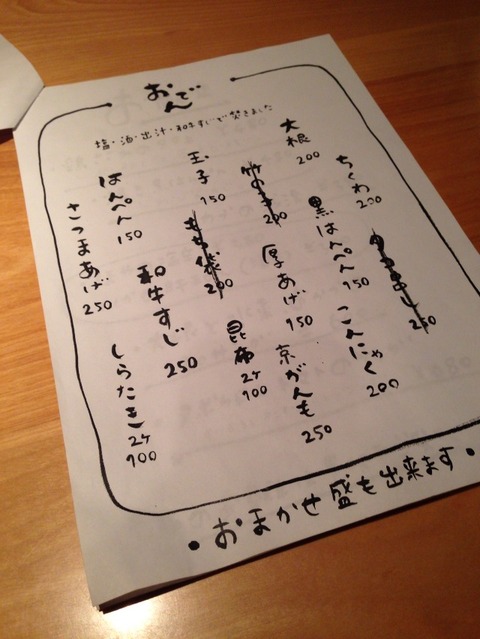 おでん
塩・酒・出汁・和牛すじで焚きました
大根
200
ちくわ
200
竹の子
200
黒はんぺん
150
玉子
150
厚あげ
150
こんにゃく
200
はんぺん
150
もち袋
200
京がんも
250
さつまあげ
250
和牛すじ
250
昆布
2ヶ
100
しらたき
2ヶ
100
250
・おまかせ盛も出来ます・